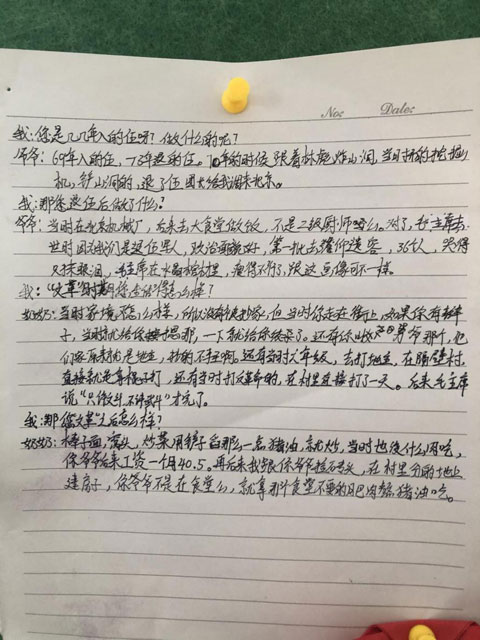 No: Date:
我:您是几几年入的伍呀?做什么的呢?
爷爷:69年入的伍,退的伍。70年的时候跟着林彪炸山洞,当时扔的挖掘
机,钻山洞的,退了伍
我:那您退伍后做了什么?
爷爷:当时在机械厂,后来去大食堂做饭,不是二级厨师吗么。对了,毛主席去
世时因为我们是退伍军人,政治面貌好,第一批去瞻仰遗容,36人,哭得
只抹眼泪,毛主席在水晶棺材里,瘦得不行了,跟这画像可不一样。
我:“文革”时期你们过得怎么样?
奶奶:当时家境不怎么样,所以没有被抄家,但当时你走在街上,如果你有辫
子,当时就给你,一下就给你铰了。还有你舅爷那个,他
们家原来就是地主,抄的不扭啊。还有当时六年级,去打地主,在隔壁村,
直接就是拿棍子打,还有当时打反革命的,在村里直接打了一天。后来毛主席
说“只能文斗不许武斗”才完了。
我:那您文革之后怎么样?
奶奶:棒子面,窝头,炒菜用铲子舀那么一点猪油,就炒,当时也没什么肉吃,
你爷爷后来工资一个月40.5。再后来我跟你爷爷,在村里分的地上
建房子,你爷爷不是在食堂么,就拿那个食堂不要的肥肉熬猪油吃。